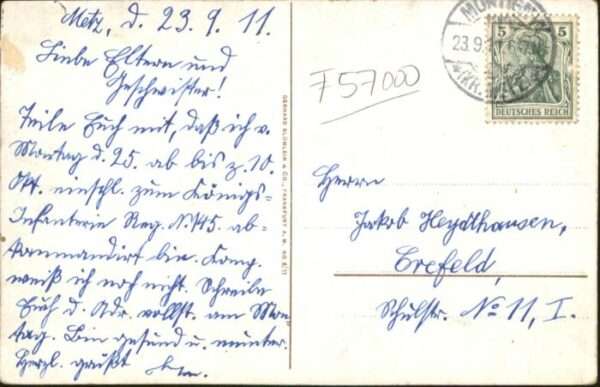 Metz, d. 23.9.11.
Liebe Eltern und
Geschwister!
Teile Euch mit, daß ich v.
Montag d. 25. ab bis z. 10.
Okt. einschl. zum Königs-
Infanterie Reg. N. 145. ab-
kommandirt bin. Komp.
weiß ich noch nicht. Schreibe
Euch d. Adr. vollst. am Mon
tag. Bin gesund u. munter.
Herzl. grüßt
GERHARD BLÜMLEIN & CO., FRANKFURT A. M.
757000
23.9.
5 5
DEUTSCHES REICH
Herrn
Jakob Heydthausen,
Crefeld,
Schulstr. No 11, I.